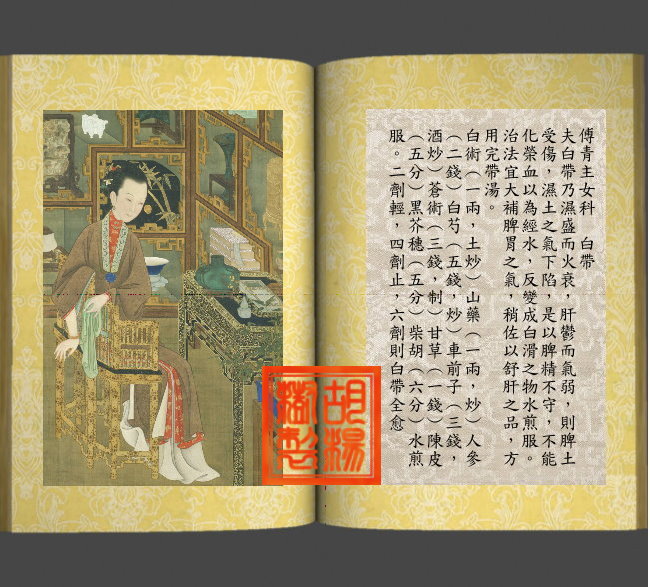 傅青主女科　白帶
夫白帶乃濕盛而火衰，肝鬱而氣弱，則脾土
受傷，濕土之氣下陷，是以脾精不守，不能
化榮血以為經水，反變成白滑之物水煎服。
治法宜大補脾胃之氣，稍佐以舒肝之品，方
用完帶湯。
白術（一兩，土炒）山藥（一兩，炒）人參
（二錢）白芍（五錢，炒）車前子（三錢，
酒炒）蒼術（三錢，制）甘草（一錢）陳皮
（五分）黑芥穗（五分）柴胡（六分）水煎
服。二劑輕，四劑止，六劑則白帶全愈
胡楊
製